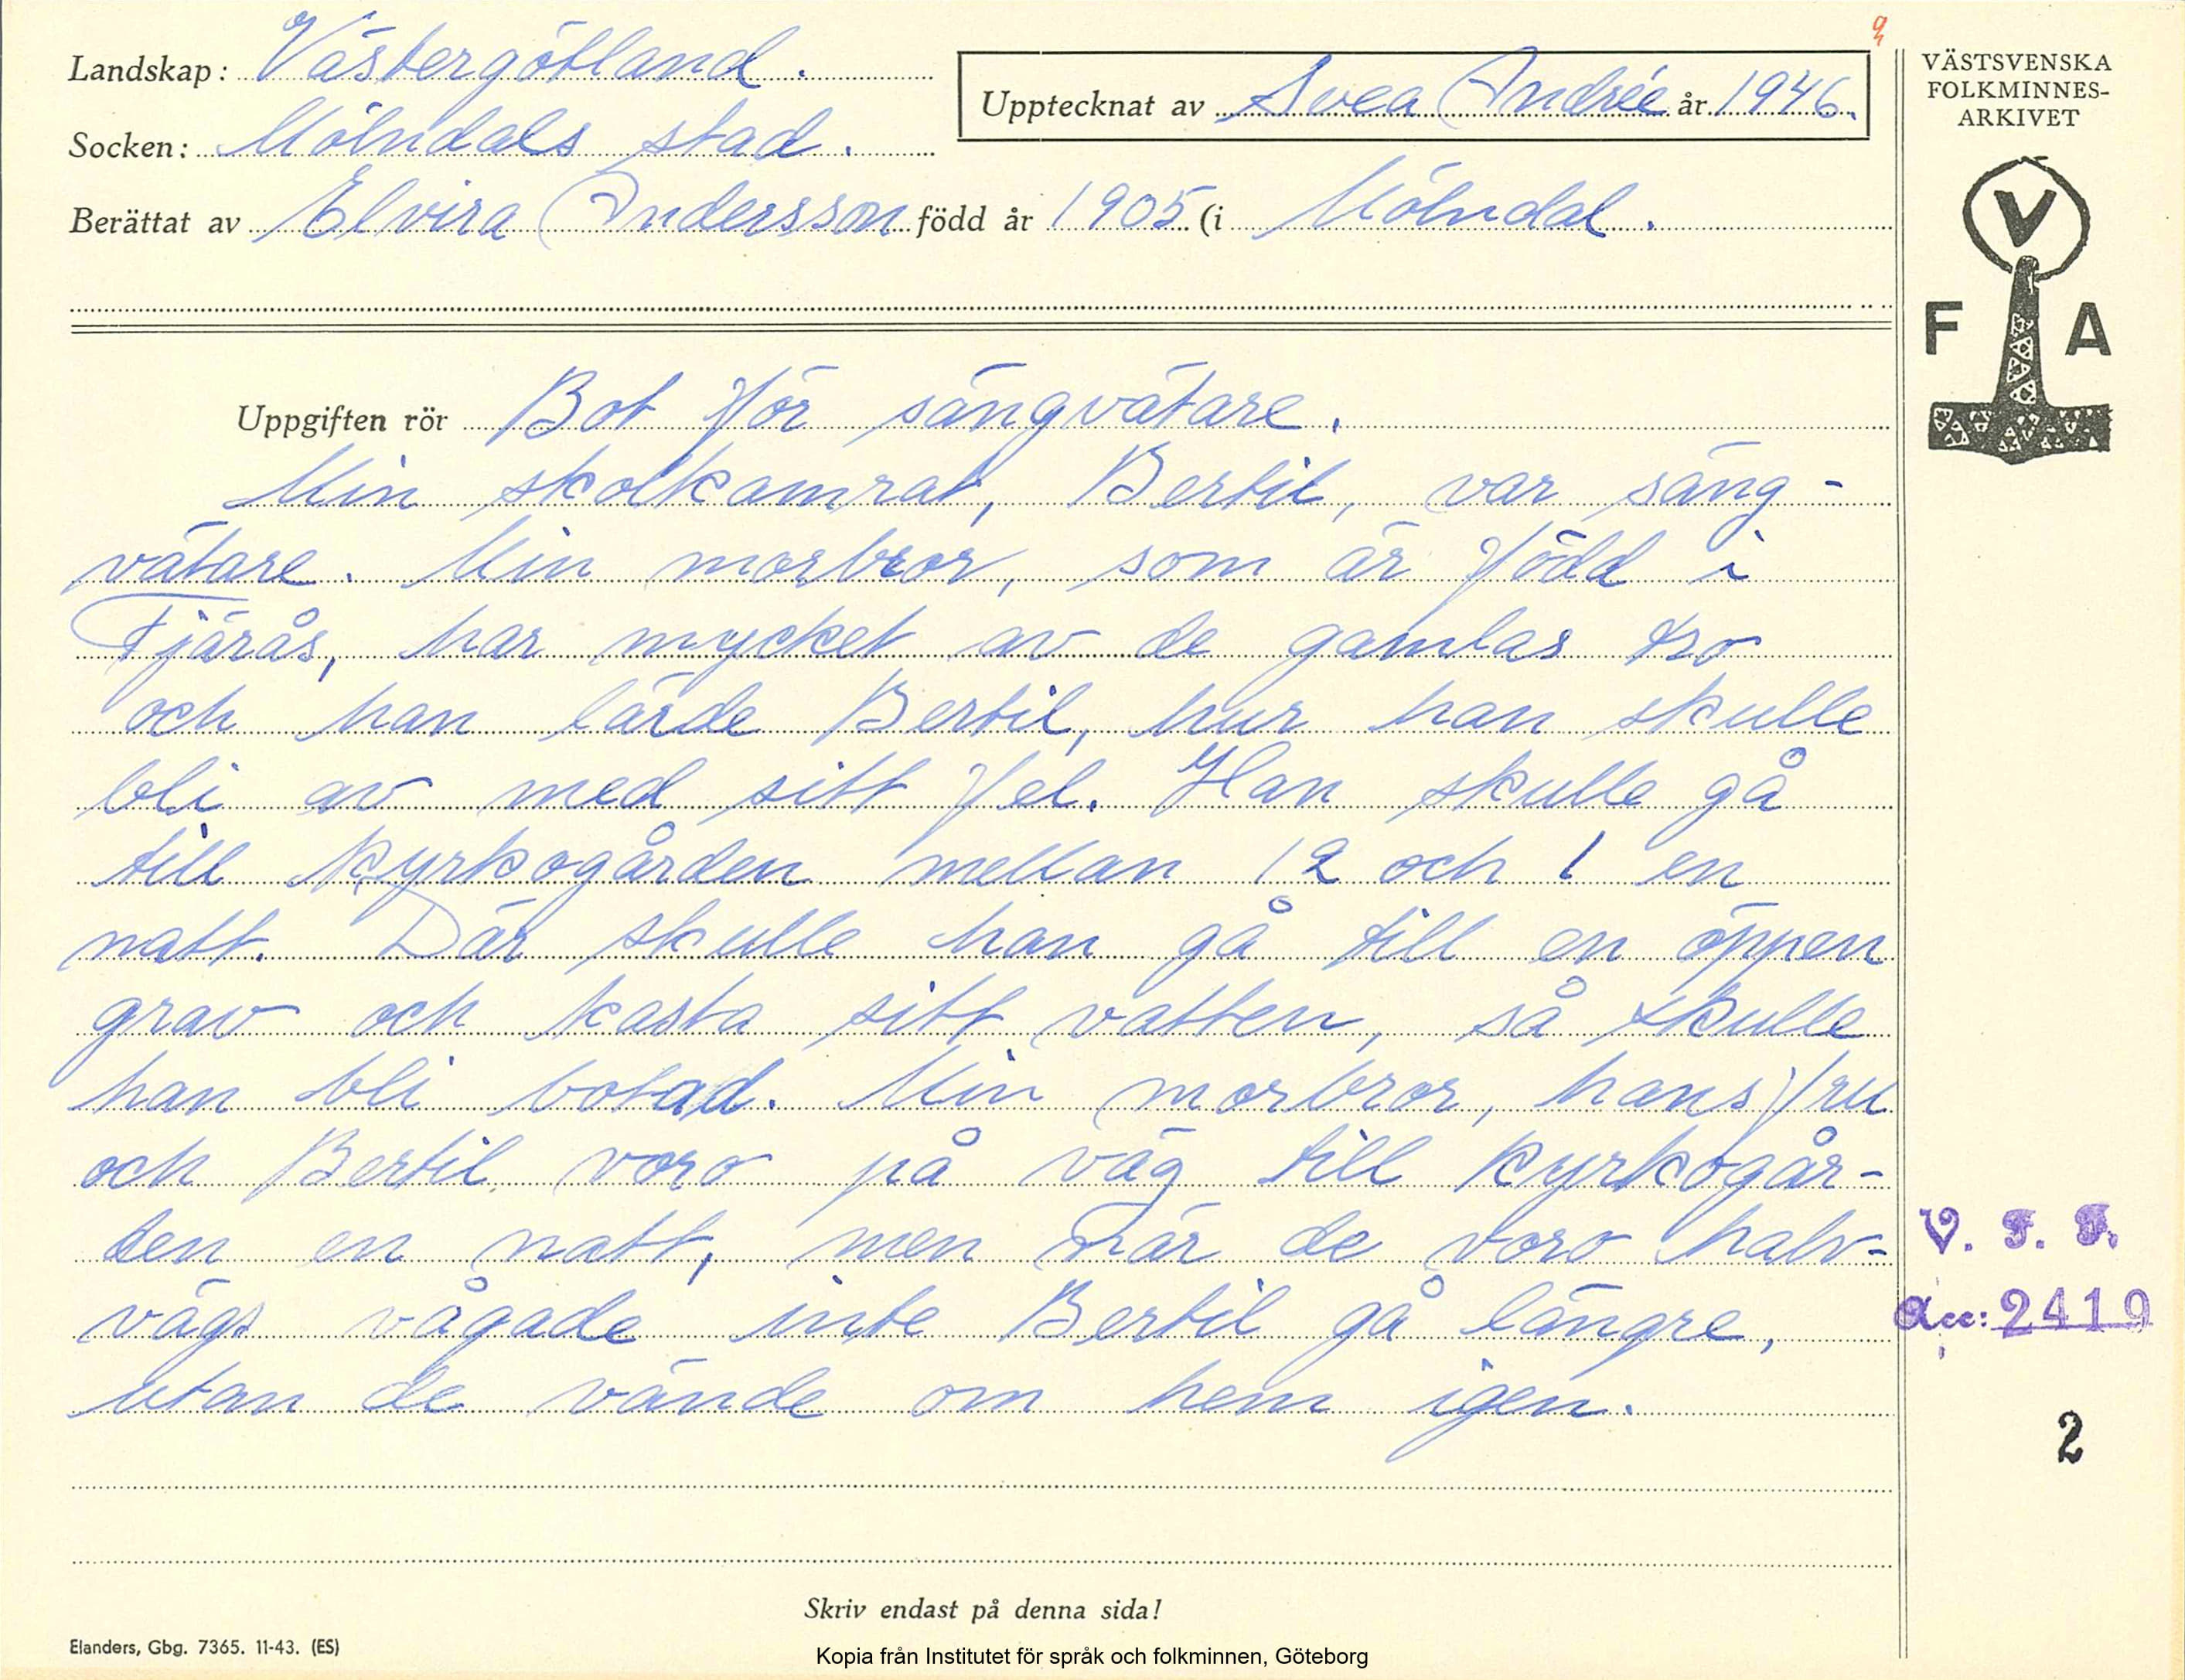 Landskap: Västergötland.
Socken: Mölndals stad.
Upptecknat av Svea Andrée år 1946.
Berättat av Elvira Andersson född år 1905 (i Mölndal.
VÄSTSVENSKA
FOLKMINNES-
ARKIVET
V
F A
Uppgiften rör Bot för sängvätare.
Min skolkamrat, Bertil, var säng-
vätare. Min morbror, som är född i
Fjärås, har mycket av de gamlas tro
och han lärde Bertil, hur han skulle
bli av med sitt fel. Han skulle gå
till kyrkogården mellan 12 och 1 en
natt. Där skulle han gå till en öppen
grav och kasta sitt vatten, så skulle
han bli botad. Min morbror, hans fru
och Bertil voro på väg till kyrkogår-
den en natt, men när de voro halv-
vägs vågade inte Bertil gå längre,
utan de vände om hem igen.
V. F. F.
Acc: 2419
2
Skriv endast på denna sida!
Elanders, Gbg. 7365. 11-43. (ES)
Kopia från Institutet för språk och folkminnen, Göteborg